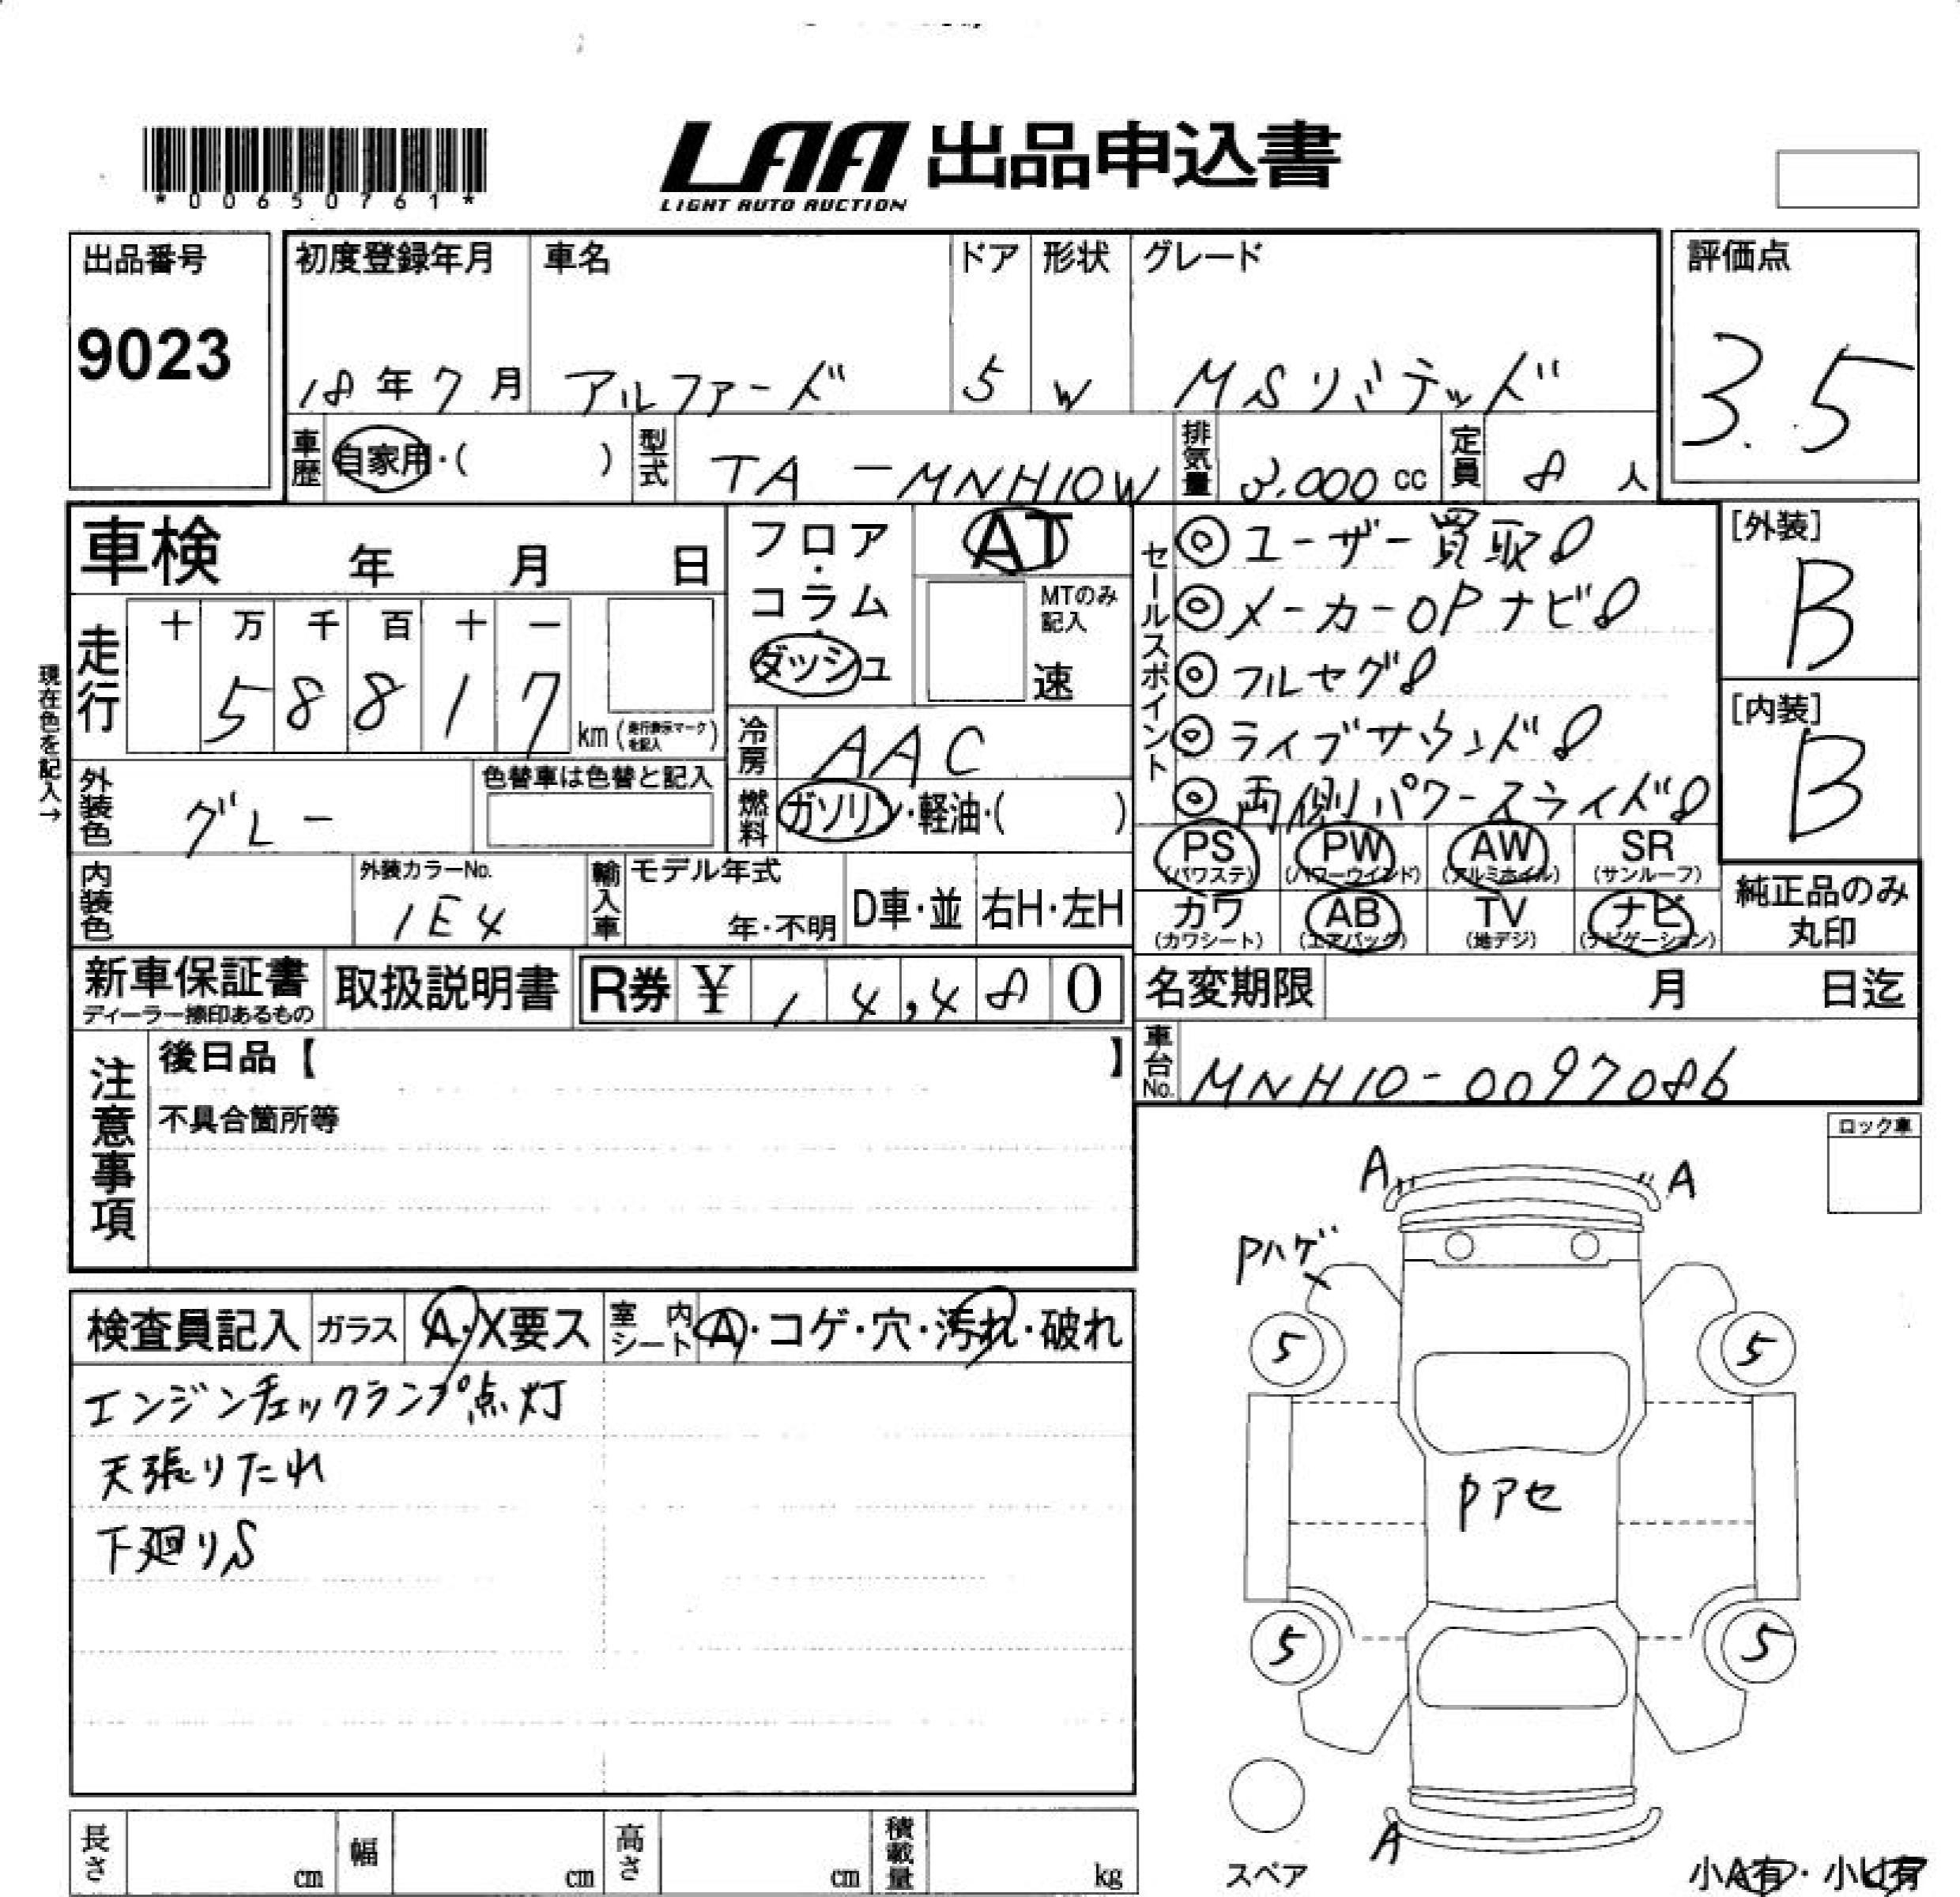 *00650761*
LAA 出品申込書
LIGHT AUTO AUCTION
出品番号
9023
初度登録年月
18年7月
車名
アルファード
ドア
5
形状
W
グレード
MSリミテッド
評価点
3.5
車歴
自家用・( )
型式
TA-MNH10W
排気量
3.000 cc
定員
8 人
車検 年 月 日
現在色を記入→
走行
十 万 千 百 十 一
5 8 8 1 7
km (走行表示マークを記入)
フロア・コラム・ダッシュ
AT
MTのみ記入
速
冷房
AAC
燃料
ガソリン・軽油・( )
セールスポイント
◎ユーザー買取!
◎メーカーOPナビ!
◎フルセグ!
◎ライブサウンド!
◎両側パワースライド!
[外装]
B
[内装]
B
外装色
グレー
色替車は色替と記入
内装色
外装カラーNo.
1E4
輸入車
モデル年式
年・不明
D車・並
右H・左H
PS (パワステ)
PW (パワーウインド)
AW (アルミホイル)
SR (サンルーフ)
カワ (カワシート)
AB (エアバッグ)
TV (地デジ)
ナビ (ナビゲーション)
純正品のみ丸印
新車保証書
ディーラー捺印あるもの
取扱説明書
R券 ¥ 14,480
名変期限 月 日迄
車台No.
MNH10-0097086
注意事項
後日品【 】
不具合箇所等
ロック車
検査員記入
ガラス
A・X要ス
室内シート
A・コゲ・穴・汚れ・破れ
エンジンチェックランプ点灯
天張りたれ
下廻りS
A
A
Pハゲ
5
5
Pアセ
5
5
A
スペア
小A有・小U有
長さ cm
幅 cm
高さ cm
積載量 kg